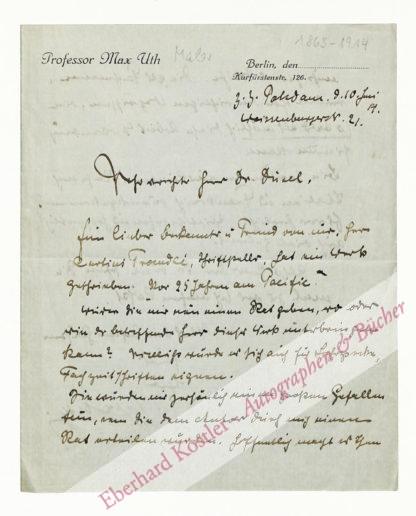 1863-1914
Professor Max Uth Maler
Berlin, den
Kurfürstenstr. 126.
z. Z. Potsdam. d. 10 Juni
Weissenburgerstr. 21.
Sehr verehrter Herr Dr. Düsel.
Ein lieber Bekannter u Freund von mir, Herr
Schriftsteller, hat ein Werk
geschrieben. Vor 25 Jahren am Pacific
Würden Sie mir nun einen Rat geben, wo oder
wie der betreffende Herr dieses Werk unterbringen
kann? würde es sich auch für
Fachzeitschriften eignen.
Sie würden mir persönlich einen großen Gefallen
tun, wenn Sie dem Autor durch mich einen
Rat erteilen würden. Hoffentlich macht es Ihnen
Eberhard Köstler - Autographen & Bücher